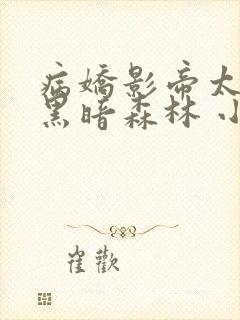 病嬌影帝太
黑暗森林 小
崔歡